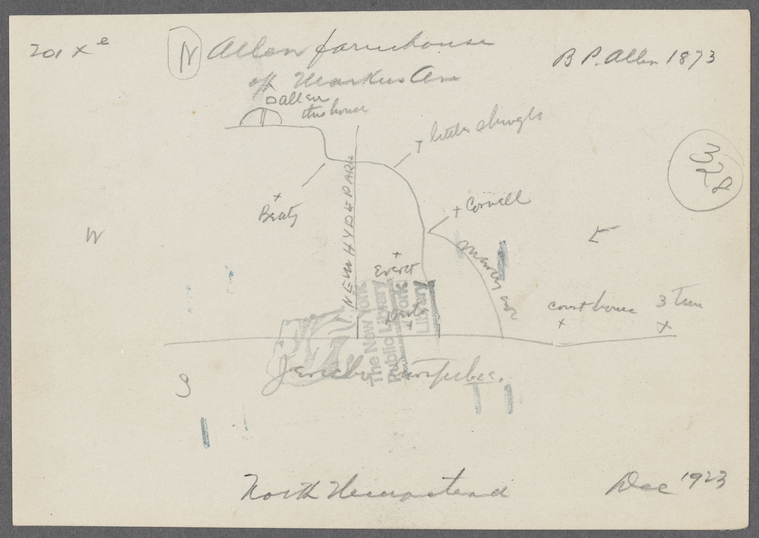 201 x e
N Allen farmhouse
off Markus Ave
B P. Allen 1873
allen
this house
little shingle
328
NEW HYDE PARK
Beaty
Cornell
W
E
Everet
court house
3 Tree
The New York
Public Library
Jericho turnpike.
S
North Hempstead
Dec 1923